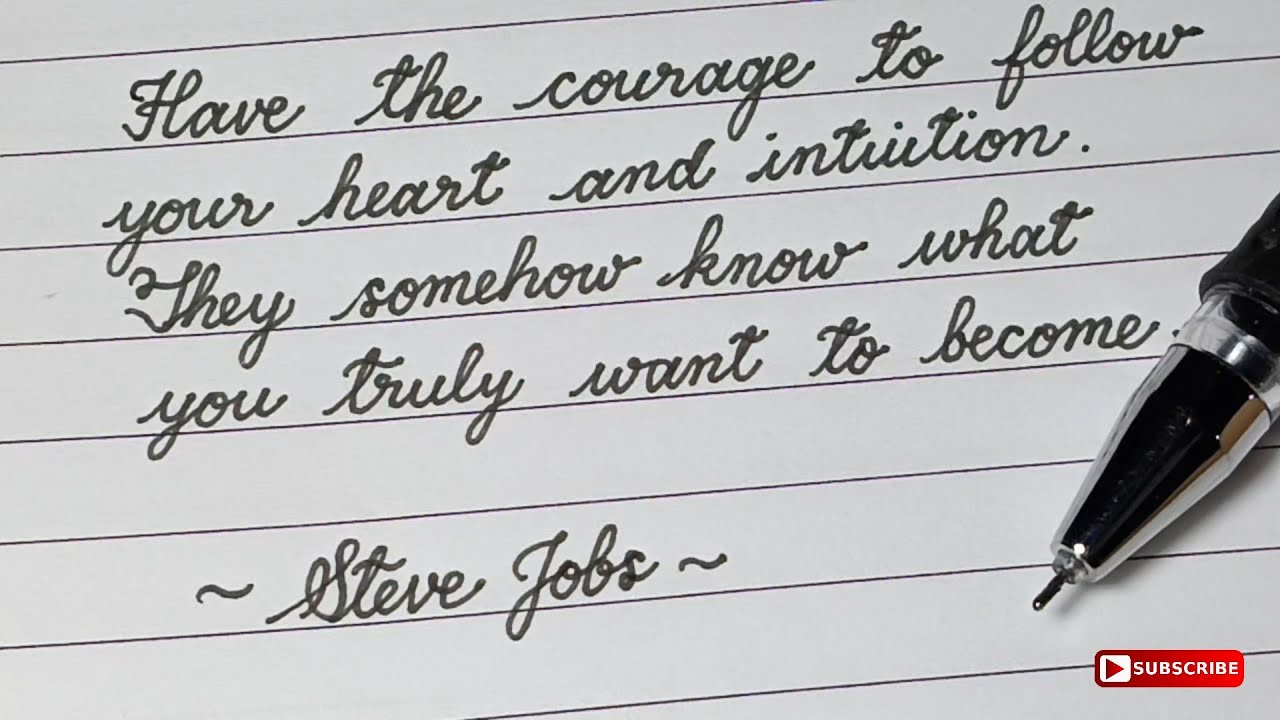 Have the courage to follow
your heart and intuition.
They somehow know what
you truly want to become.
~ Steve Jobs ~
SUBSCRIBE